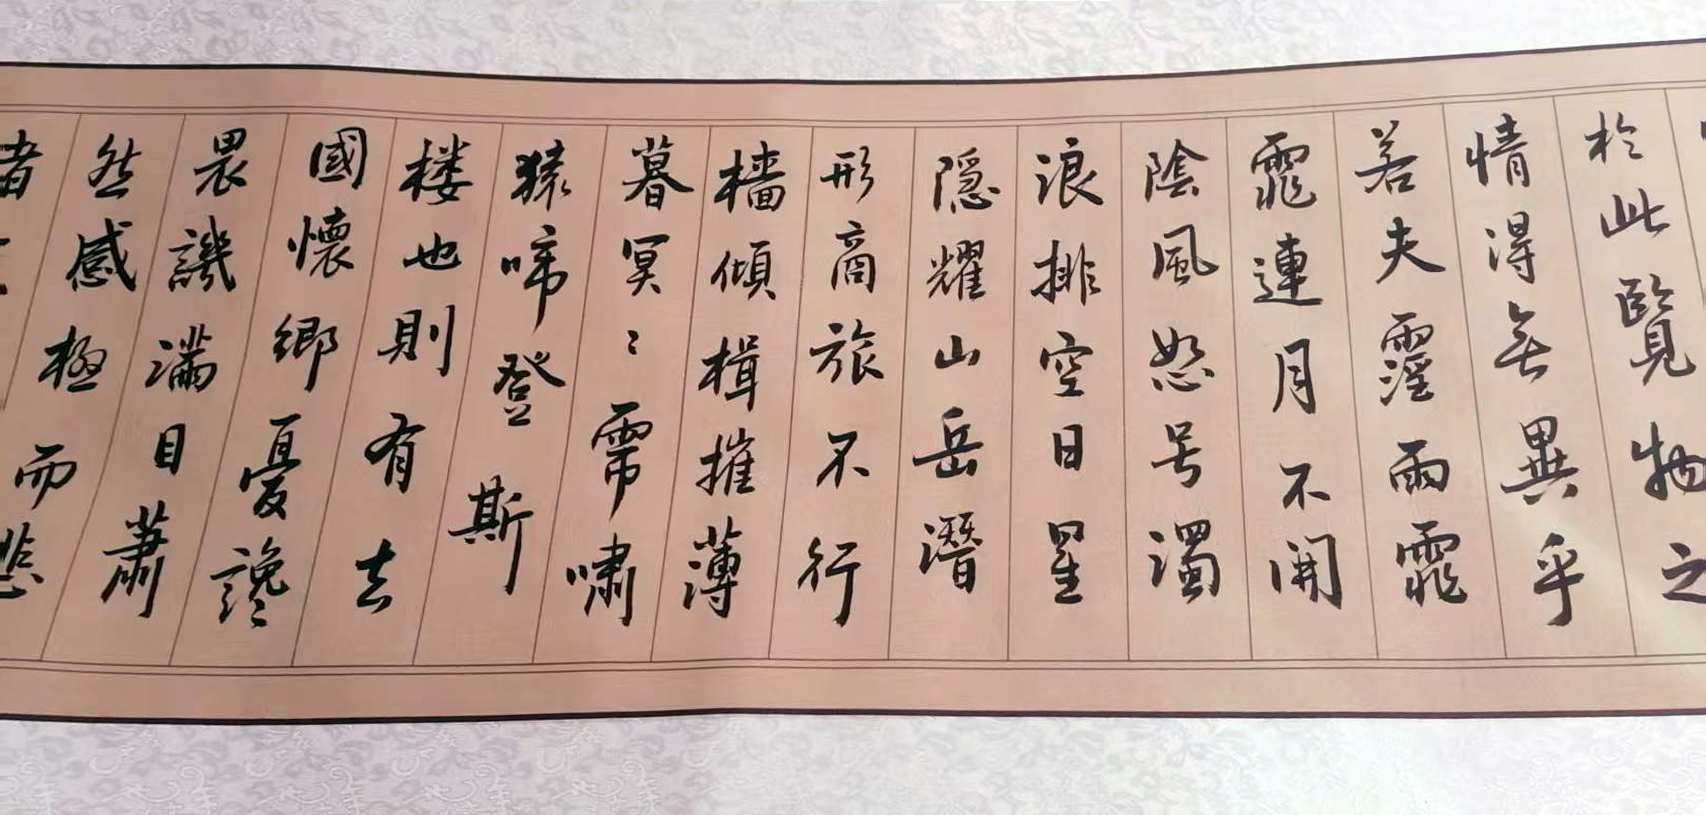 於此覽物之
情得無異乎
若夫霪雨霏
霏連月不開
陰風怒号濁
浪排空日星
隐耀山岳潛
形商旅不行
檣傾楫摧薄
暮冥〻虎嘯
猿啼登斯
楼也則有去
國懷鄉憂讒
畏譏滿目蕭
然感極而悲
者